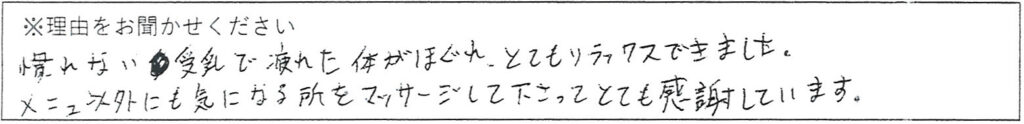 ※理由をお聞かせください
慣れない受乳で疲れた体がほぐれ、とてもリラックスできました。
メニュー以外にも気になる所をマッサージして下さってとても感謝しています。